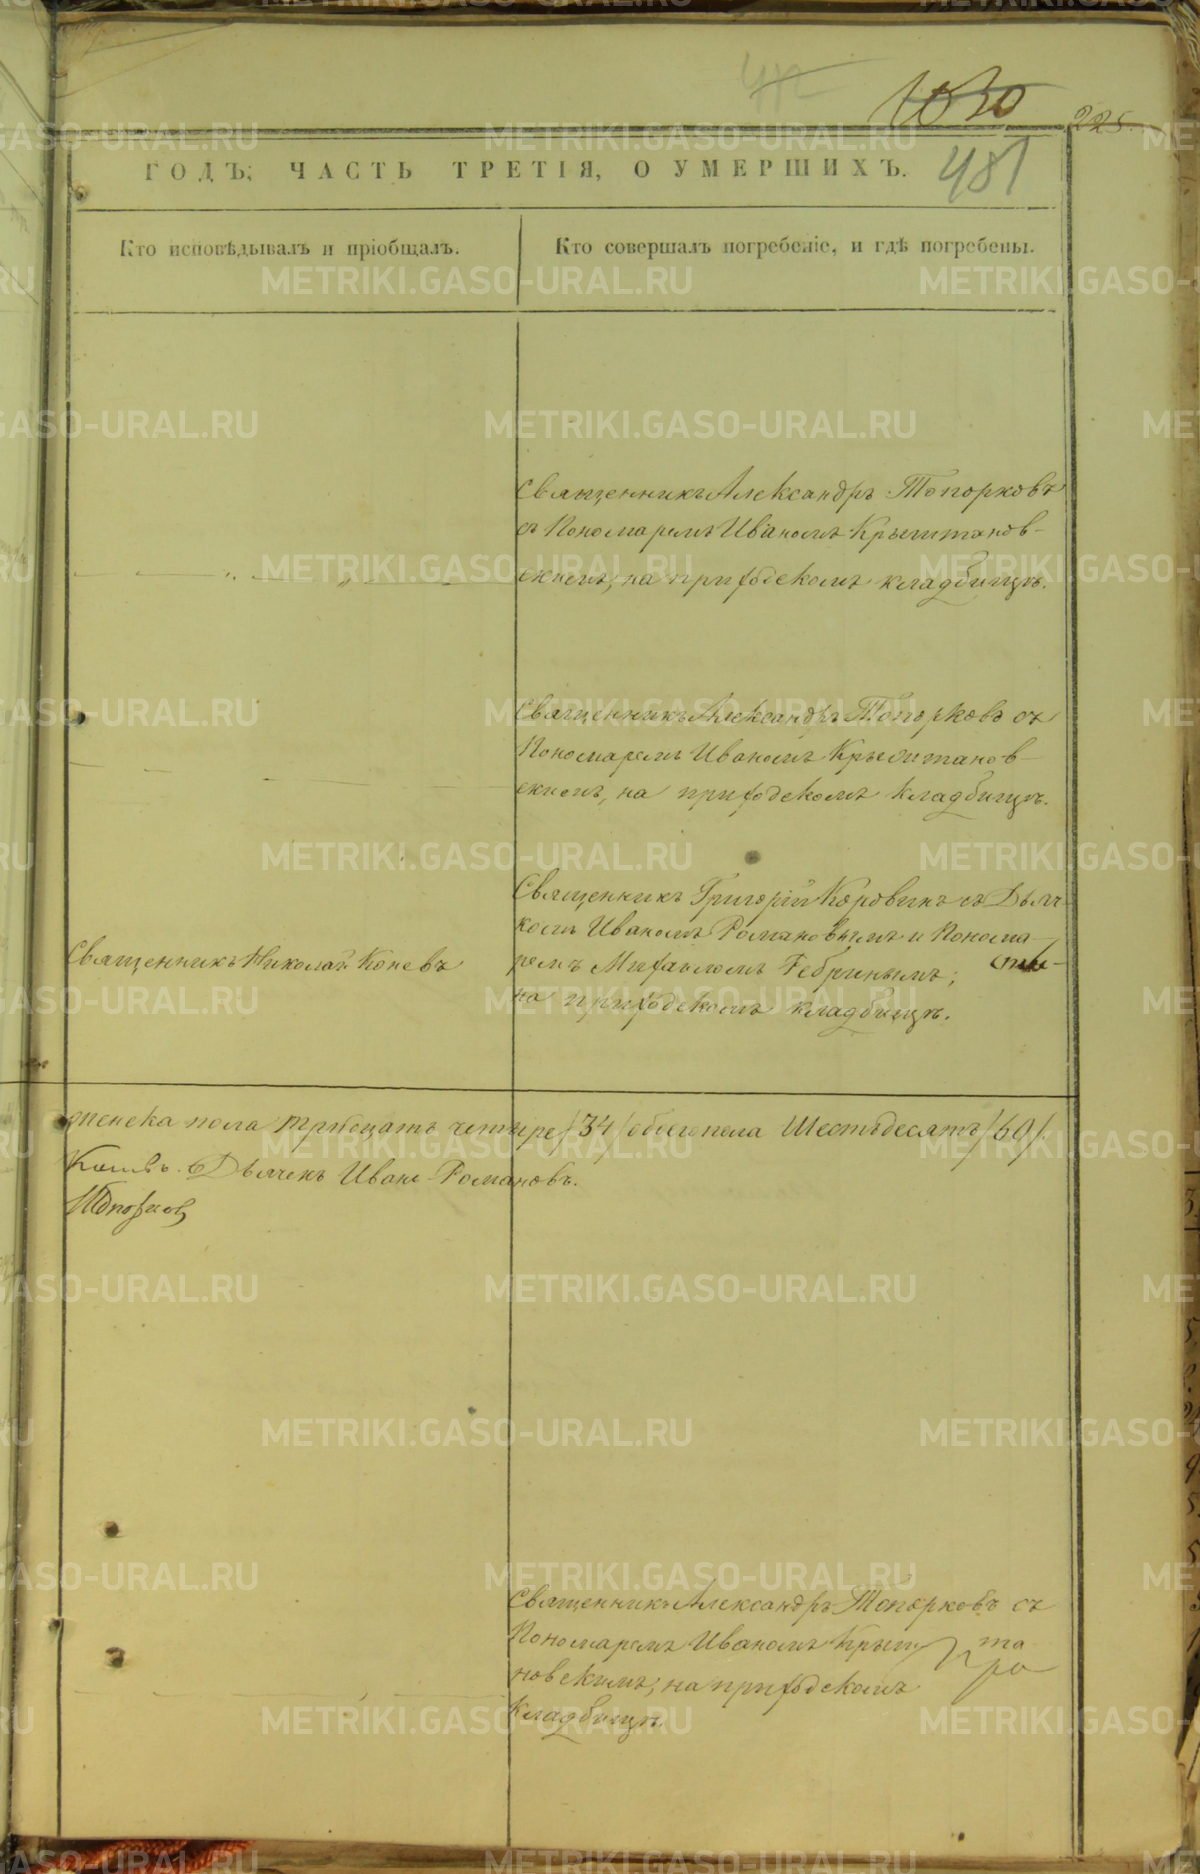 1030
225.
481
ГОДЪ; ЧАСТЬ ТРЕТІЯ, О УМЕРШИХЪ.
Кто исповѣдывалъ и пріобщалъ.
Кто совершалъ погребеніе, и гдѣ погребены.
Священникъ Александръ Топорковъ
съ Пономаремъ Иваномъ Крыштанов-
скимъ, на приходскомъ кладбищѣ.
Священникъ Александръ Топорковъ съ
Пономаремъ Иваномъ Крыштанов-
скимъ, на приходскомъ кладбищѣ.
Священникъ Николай Коневъ
Священникъ Григорій Коровинъ съ Дьяч-
комъ Иваномъ Романовымъ и Понома-
ремъ Михаиломъ
на приходскомъ кладбищѣ.
женска пола тритцать четыре /34/ обоего пола Шестьдесятъ /60/.
Дьячекъ Иванъ Романовъ.
Топорков
Священникъ Александръ Топорковъ съ
Пономаремъ Иваномъ Крыш та
новскимъ, на приходскомъ
кладбищѣ.
METRIKI.GASO-URAL.RU